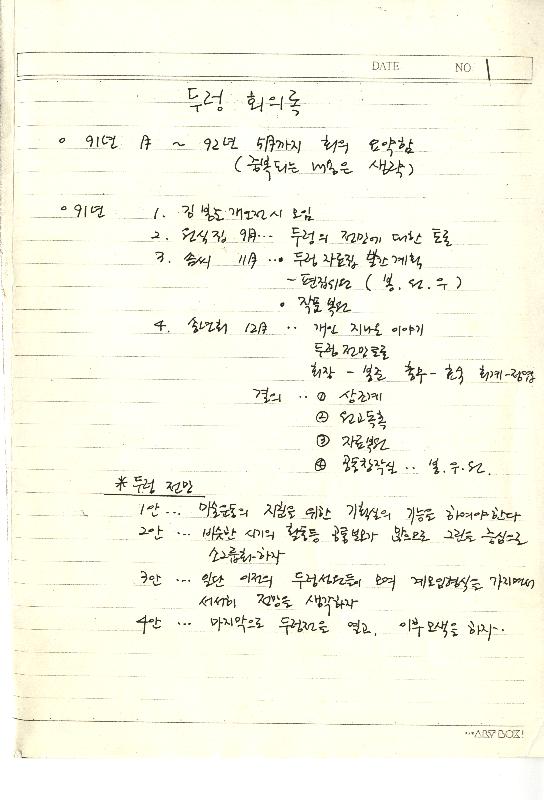 DATE NO 1
두렁 회의록
○ 91년 1月 ~ 92년 5月까지 회의 요약함
(중복되는 내용은 생략)
○ 91년 1. 김봉준 개인전시 모임
2. 원식집 9月… 두렁의 전망에 대한 토론
3. 솜씨 11月… • 두렁 자료집 발간계획
- 편집위원 (봉. 원. 우)
• 작품 복원
4. 송년회 12月 .. 개인 지나온 이야기
두렁 전망토론
회장 - 봉준 총무 - 회계 -
결의 .. ① 상조계
② 원고독촉
③ 자료복원
④ 공동창작실 .. 봉. 우. 원.
* 두렁 전망
1안 … 미술운동의 지원을 위한 기획실의 기능을 하여야 한다
2안 … 비슷한 시기의 활동등 공통분모가 많으므로 그림을 중심으로
소그룹화 하자
3안 … 일단 이전의 두렁성원들이 모여 계모임형식을 가지면서
서서히 전망을 생각하자
4안 … 마지막으로 두렁전을 열고, 이후 모색을 하자..
ART BOX!